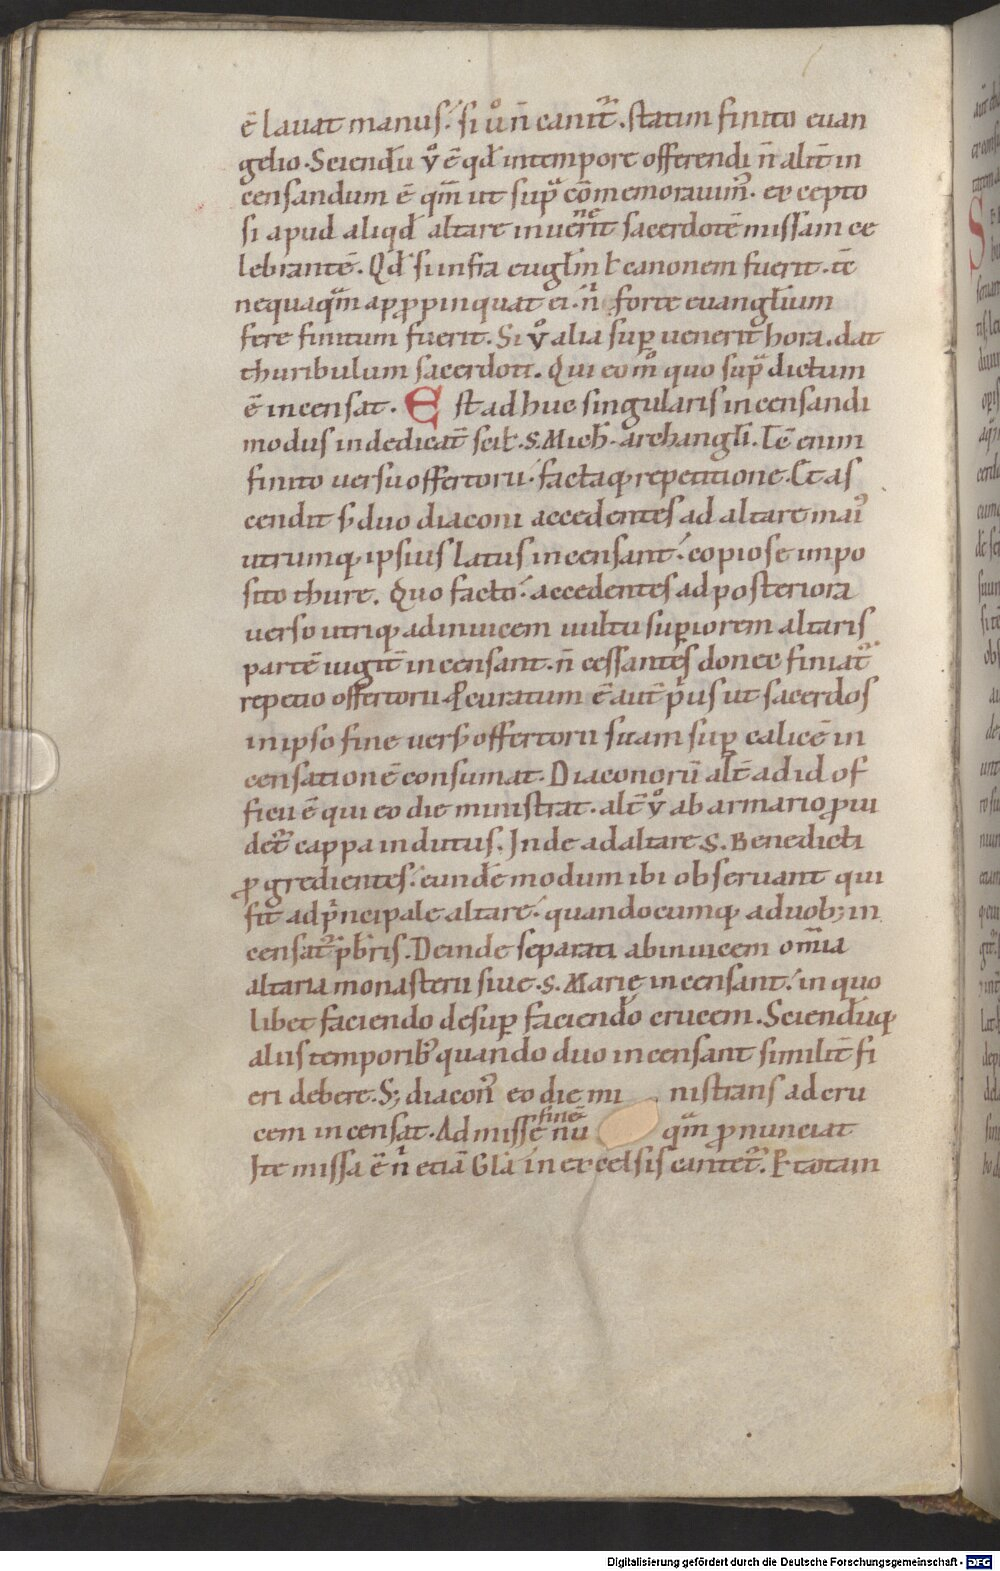 ē lauat manus. si u̅o n̄ canit᷑. statim finito euan
gelio. Sciendū v̊ ē qđ in tempore offerendi n̄ alit̄ in
censandum ē qm̄ ut supᷓ cōmemorauim᷒. excepto
si apud aliqđ altare inuenerit sacerdotē missam ce
lebrantē. Qđ si infra eugl̄m ł canonem fuerit. tē
nequaqᷓm appropinquat ei. n̍ forte euangl̄ium
fere finitum fuerit. Si v̊ alia suꝑ uenerit hora. dat
thuribulum sacerdoti. Qui eo m̊ quo supᷓ dictum
ē incensat. Est adhuc singularis incensandi
modus in dedicat̄ scił. S. Mich̄. archangłi. Tē enim
finito uersu offertorii. factaq; repetitione. Et as
cendit s; duo diaconi accedentes ad altare mai᷒
utrumq; ipsius latus incensant. copiose impo
sito thure. Quo facto. accedentes ad posteriora
uerso utriq; adinuicem uultu suꝑiorem altaris
partē iugit̄ incensant. n̄ cessantes donec finiat᷑
repetio offertorii. ꝓcuratum ē aut̄ p̍us ut sacerdos
in ipso fine uers; offertorii suam suꝑ calicē in
censationē consumat. Diaconorū alt̄ ad id of
ficii ē qui eo die ministrat. alt̄ v̊ ab armario ꝓui
det᷑ cappa indutus. Inde ad altare S. Benedicti
ꝓgredientes. eundē modum ibi obseruant qui
fit ad p̍ncipale altare. quandocumq; a duob; in
censat᷑ pb̄ris. Deinde separati abinuicem om̄ia
altaria monasterii siue S. Marie incensant. in quo
libet faciendo desuꝑ faciendo crucem. Sciendūq;
aliis temporib᷒ quando duo incensant similit̄ fi
eri debere. S; diacon᷒ eo die ministrans ad cru
cem incensat. Ad misse finē nū qᷓm pronunciat
Ite missa ē n̍ etiā Gła in excelsis cantet᷑. Et totam
Digitalisierung gefördert durch die Deutsche Forschungsgemeinschaft - DFG